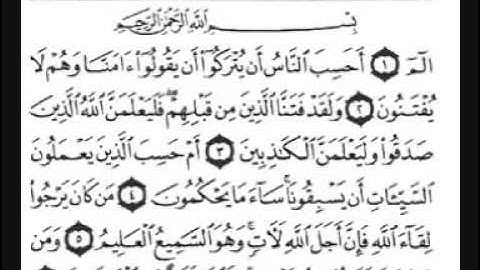 بِسْمِ ٱللَّهِ ٱلرَّحْمَٰنِ ٱلرَّحِيمِ
الٓمٓ ١ أَحَسِبَ ٱلنَّاسُ أَن يُتْرَكُوٓا۟ أَن يَقُولُوٓا۟ ءَامَنَّا وَهُمْ لَا
يُفْتَنُونَ ٢ وَلَقَدْ فَتَنَّا ٱلَّذِينَ مِن قَبْلِهِمْ ۖ فَلَيَعْلَمَنَّ ٱللَّهُ ٱلَّذِينَ
صَدَقُوا۟ وَلَيَعْلَمَنَّ ٱلْكَٰذِبِينَ ٣ أَمْ حَسِبَ ٱلَّذِينَ يَعْمَلُونَ
ٱلسَّيِّـَٔاتِ أَن يَسْبِقُونَا ۚ سَآءَ مَا يَحْكُمُونَ ٤ مَن كَانَ يَرْجُوا۟
لِقَآءَ ٱللَّهِ فَإِنَّ أَجَلَ ٱللَّهِ لَءَاتٍ ۚ وَهُوَ ٱلسَّمِيعُ ٱلْعَلِيمُ ٥ وَمَن